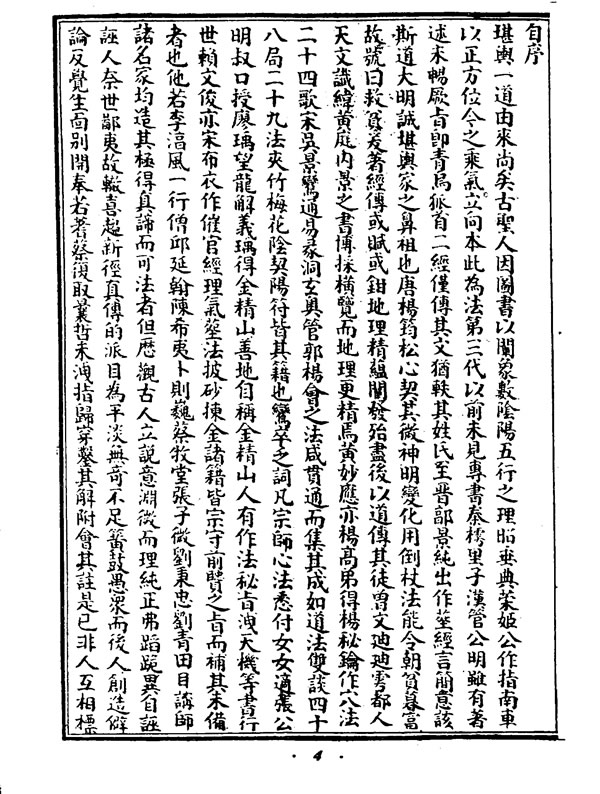 自序
堪輿一道由來尚矣古聖人因圖書以闡象數陰陽五行之理昭垂典策姬公作指南車
以正方位令之乘氣立向本此為法第三代以前未見專書秦樗里子漢管公明雖有著
述未暢厥旨卽青烏狐首二經僅傳其文猶軼其姓氏至晋郭景純出作塟經言簡意該
斯道大明誠堪輿家之鼻祖也唐楊筠松心契其微神明變化用倒杖法能令朝貧暮富
故號曰救貧爰著經傳或賦或鉗地理精蘊闡發殆盡後以道傳其徒曽文迪迪雩都人
天文讖緯黃庭内景之書博採橫覽而地理更精焉黃妙應亦楊高弟得楊秘鑰作穴法
二十四歌宋吳景鸞通易象洞玄奥管郭楊曾之法咸貫通而集其成如道法雙談四十
八局二十九法夾竹梅花陰契陽符皆其籍也鸞卒之詞凡宗師心法悉付女女適張公
明叔口授廖瑀望龍觧義瑀得金精山善地自稱金精山人有作法秘旨洩天機等書行
世賴文俊亦宋布衣作催官經理氣塟法披砂揀金諸籍皆宗守前賢之旨而補其未備
者也他若李淳風一行僧邱延翰陳希夷卜則巍蔡牧堂張子微劉秉忠劉青田目講師
諸名家均造其極得真諦而可法者但歷觀古人立說意淵微而理純正弗蹈詭異自誣
誣人奈世鄙夷故轍喜趨新徑真傳的派目為平淡無奇不足簧鼓愚衆而後人創造僻
論反覺生面别開奉若蓍蔡復取曩哲未洩指歸穿鑿其解附會其註是已非人互相標
4